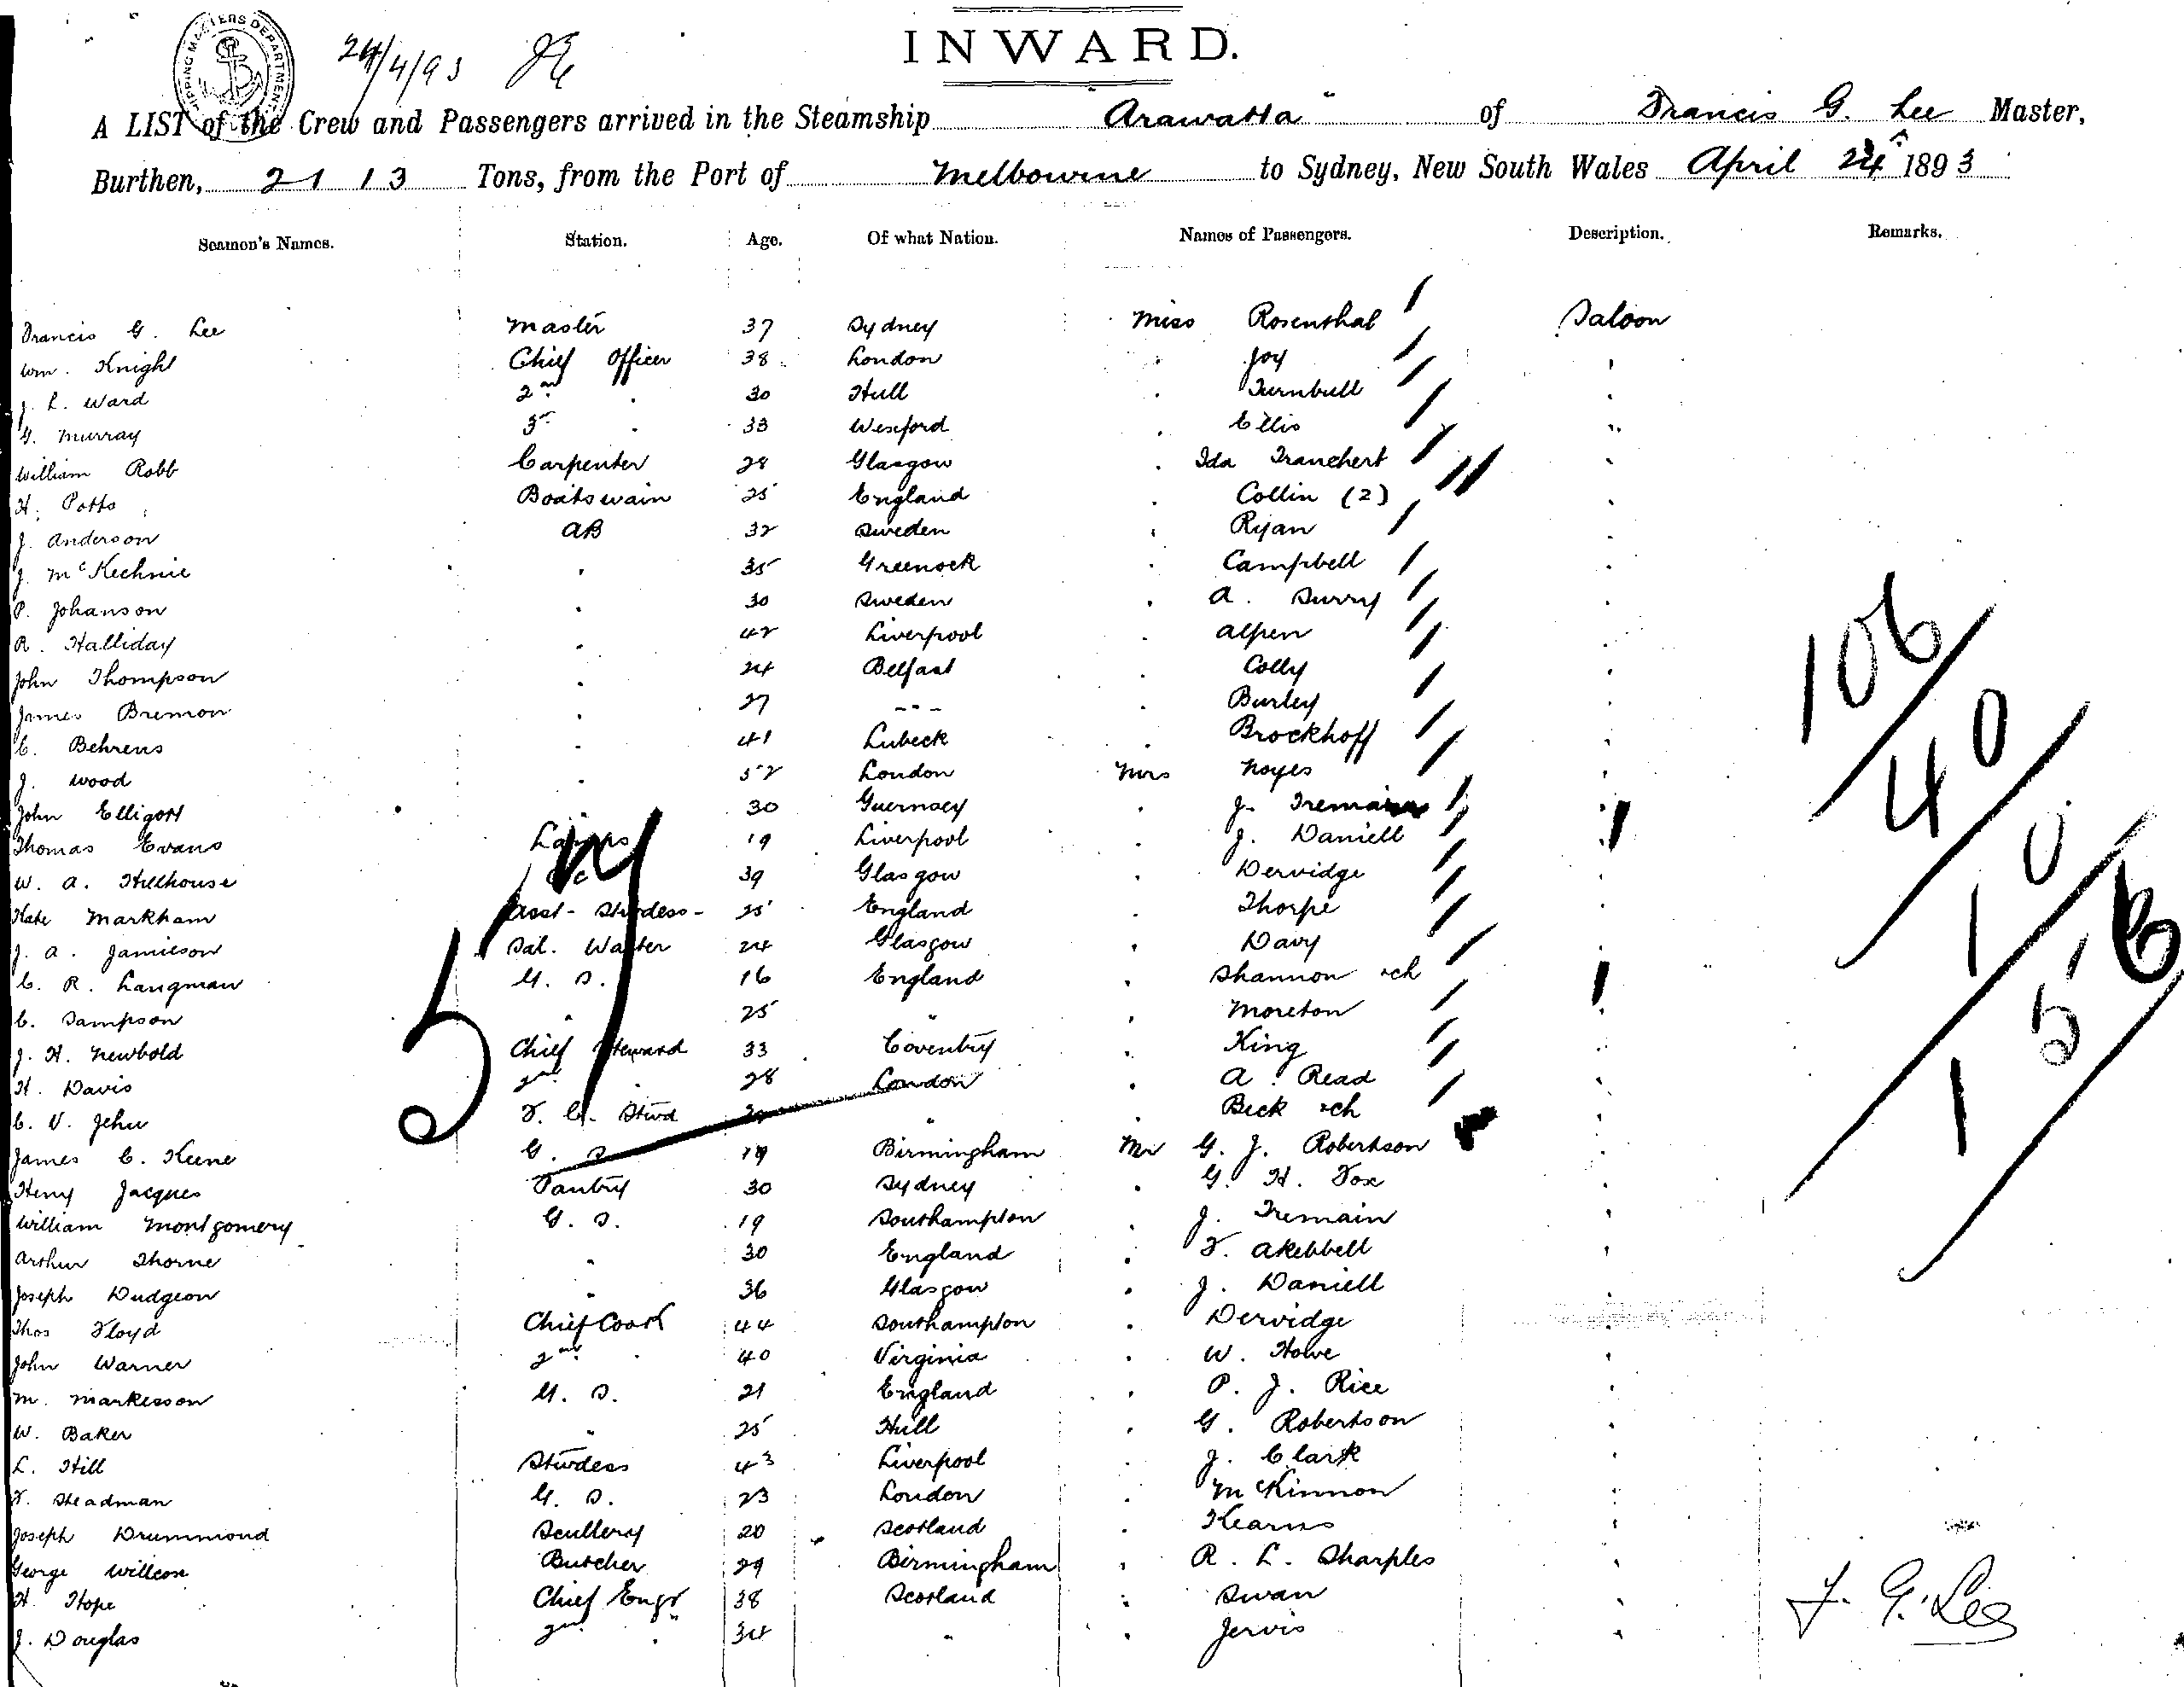 SHIPPING MASTERS DEPARTMENT
24/4/93
INWARD.
A LIST of the Crew and Passengers arrived in the Steamship Arawatta of Francis G. Lee Master,
Burthen, 2113 Tons, from the Port of Melbourne to Sydney, New South Wales April 24 1893
Seamen's Names. Station. Age. Of what Nation. Names of Passengers. Description. Remarks.
Francis G. Lee Master 37 Sydney Miss Rosenthal Saloon
Wm. Knight Chief Officer 38 London " Joy "
J. L. Ward 2nd " 30 Hull " Turnbull "
G. Murray 3rd " 33 Wexford " Ellis "
William Robb Carpenter 28 Glasgow " Ida Tranchert "
H. Potts Boatswain 25 England " Collin (2) "
J. Anderson AB 32 Sweden " Ryan "
J. McKechnie " 35 Greenock " Campbell "
P. Johanson " 30 Sweden " A. Surry "
R. Halliday " 42 Liverpool " Alpen "
John Thompson " 24 Belfast " Colly "
James Bremon " 27 - - - " Burley "
C. Behrens " 41 Lubeck " Brockhoff "
J. Wood " 52 London Mrs Noyes "
John Elligott " 30 Guernsey " J. Tremain "
Thomas Evans Lamps 19 Liverpool " J. Daniell "
W. A. Hillhouse 39 Glasgow " Dervidge "
Kate Markham Asst- Stwdess- 25 England " Thorpe "
J. A. Jamieson Sal. Waiter 24 Glasgow " Davy "
C. R. Langman G. S. 16 England " Shannon & ch "
C. Sampson " 25 " " Moreton "
J. H. Newbold Chief Steward 33 Coventry " King "
H. Davis 2nd " 28 London " A. Read "
C. V. Jehu F. C. Stwd " " Beck & ch "
James C. Keene G. S. 19 Birmingham Mr G. J. Robertson "
Henry Jacques Pantry 30 Sydney " G. H. Fox "
William Montgomery G. S. 19 Southampton " J. Tremain "
Arthur Thorne " 30 England " F. Akebbell "
Joseph Dudgeon " 36 Glasgow " J. Daniell "
Thos Floyd Chief Cook 44 Southampton " Dervidge "
John Warner 2nd " 40 Virginia " W. Howe "
M. Markesson G. S. 21 England " P. J. Rice "
W. Baker " 25 Hull " G. Robertson "
L. Hill Stwdess 43 Liverpool " J. Clark "
F. Steadman G. S. 23 London " McKinnon "
Joseph Drummond Scullery 20 Scotland " Kearns "
George Willcox Butcher 29 Birmingham " R. L. Sharples "
H. Hope Chief Engr 38 Scotland " Swan "
J. Douglas 2nd " 34 " " Jervis "
57
106/
40/
10/
156
F. G. Lee